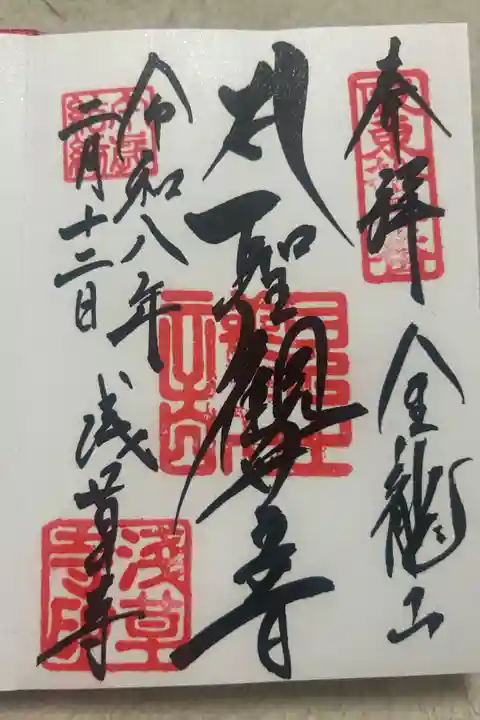 奉拝
金龍山
聖観世音
令和八年
二月十二日
浅草寺
淺草寺印